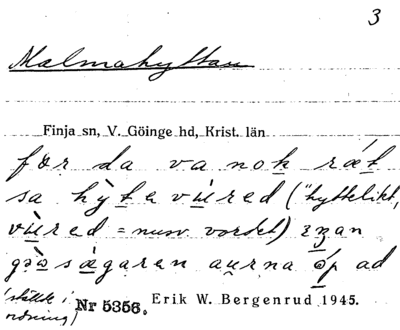 3
Malmahyttan
Finja sn, V. Göinge hd, Krist. län
for da va nok ræt
sa hỳtevu̇red ("hyttelikt,
vu̇red = nuv. vordet)
sågaren aurna óp ad
(ställt i
ordning)
Nr 5356. Erik W. Bergenrud 1945.